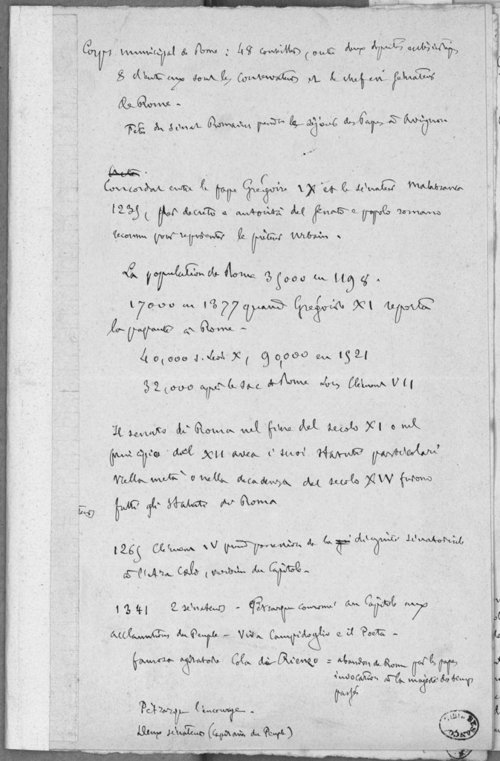 Corps municipal de Rome : 48 conseillers, outre deux députés ecclésiastiques
8 d'entre eux sont les conservateurs et le chef est sénateur
de Rome.
du Sénat Romain pendant le séjour des Papes à Avignon
Concordat entre le pape Grégoire IX et le sénateur Malabranca
1235, per decreto e autorità del Senato e popolo romano
reconnu pour représenter le préteur Urbain.
La population de Rome 35000 en 1198.
17000 en 1377 quand Grégoire XI reporta
la papauté à Rome.
40,000 s. Léon X, 90,000 en 1521
32,000 après le sac de Rome sous Clément VII
Il senato di Roma nel fine del secolo XI o nel
principio del XII avea i suoi statuti particolari
Nella metà o nella decadenza del secolo XIV furono
fatti gli statuti di Roma
1265 Clément IV prend possession de la dignité senatoriale
à l'Ara Cœli, du Capitole.
1341 2 senateurs - Pétrarque couronné au Capitole aux
acclamations du Peuple - Viva Campidoglio e il Poeta -
famoso agitatore Cola di Rienzo = abandon de Rome par les papes
invocation à la majesté des temps
passés
Pétrarque l'encourage.
Deux sénateurs (capitaines du Peuple)